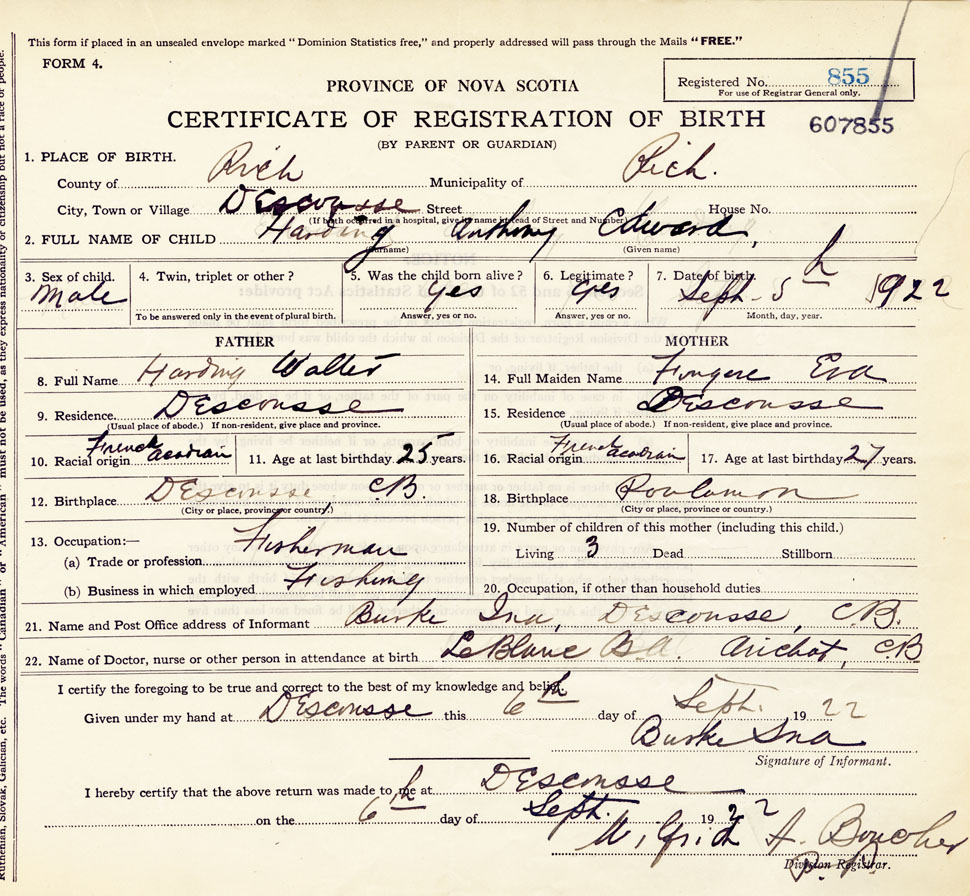 This form if placed in an unsealed envelope marked "Dominion Statistics free," and properly addressed will pass through the Mails "FREE."
FORM 4.
Registered No. 855
For use of Registrar General only.
PROVINCE OF NOVA SCOTIA
CERTIFICATE OF REGISTRATION OF BIRTH
607855
(BY PARENT OR GUARDIAN)
1. PLACE OF BIRTH.
County of Rich Municipality of Rich.
City, Town or Village DEscousse Street House No.
(If birth occurred in a hospital, give its name instead of Street and Number)
2. FULL NAME OF CHILD Harding Anthony Edward,
(Surname) (Given name)
3. Sex of child. 4. Twin, triplet or other? 5. Was the child born alive? 6. Legitimate? 7. Date of birth.
Male Yes Yes Sept. 5th 1922
To be answered only in the event of plural birth. Answer, yes or no. Answer, yes or no. Month, day, year.
FATHER
8. Full Name Harding Walter
9. Residence. DEscousse
(Usual place of abode.) If non-resident, give place and province.
10. Racial origin French Acadian 11. Age at last birthday 25 years.
12. Birthplace DEscousse. C.B.
(City or place, province or country.)
13. Occupation:—
(a) Trade or profession Fisherman
(b) Business in which employed Fishing
MOTHER
14. Full Maiden Name Fougere Eva
15. Residence DEscousse
(Usual place of abode.) If non-resident, give place and province.
16. Racial origin French Acadian 17. Age at last birthday 27 years.
18. Birthplace
(City or place, province or country.)
19. Number of children of this mother (including this child.)
Living 3 Dead Stillborn
20. Occupation, if other than household duties
21. Name and Post Office address of Informant Burke Ina, DEscousse, C.B.
22. Name of Doctor, nurse or other person in attendance at birth LeBlanc B.A. Arichat, C.B
I certify the foregoing to be true and correct to the best of my knowledge and belief.
Given under my hand at DEscousse this 6th day of Sept. 1922
Burke Ina
Signature of Informant.
I hereby certify that the above return was made to me at DEscousse
on the 6th day of Sept. 1922
Wilfrid A. Boucher
Division Registrar.
Ruthenian, Slovak, Galician, etc. The words "Canadian" or "American" must not be used, as they express nationality or citizenship but not a race or people.